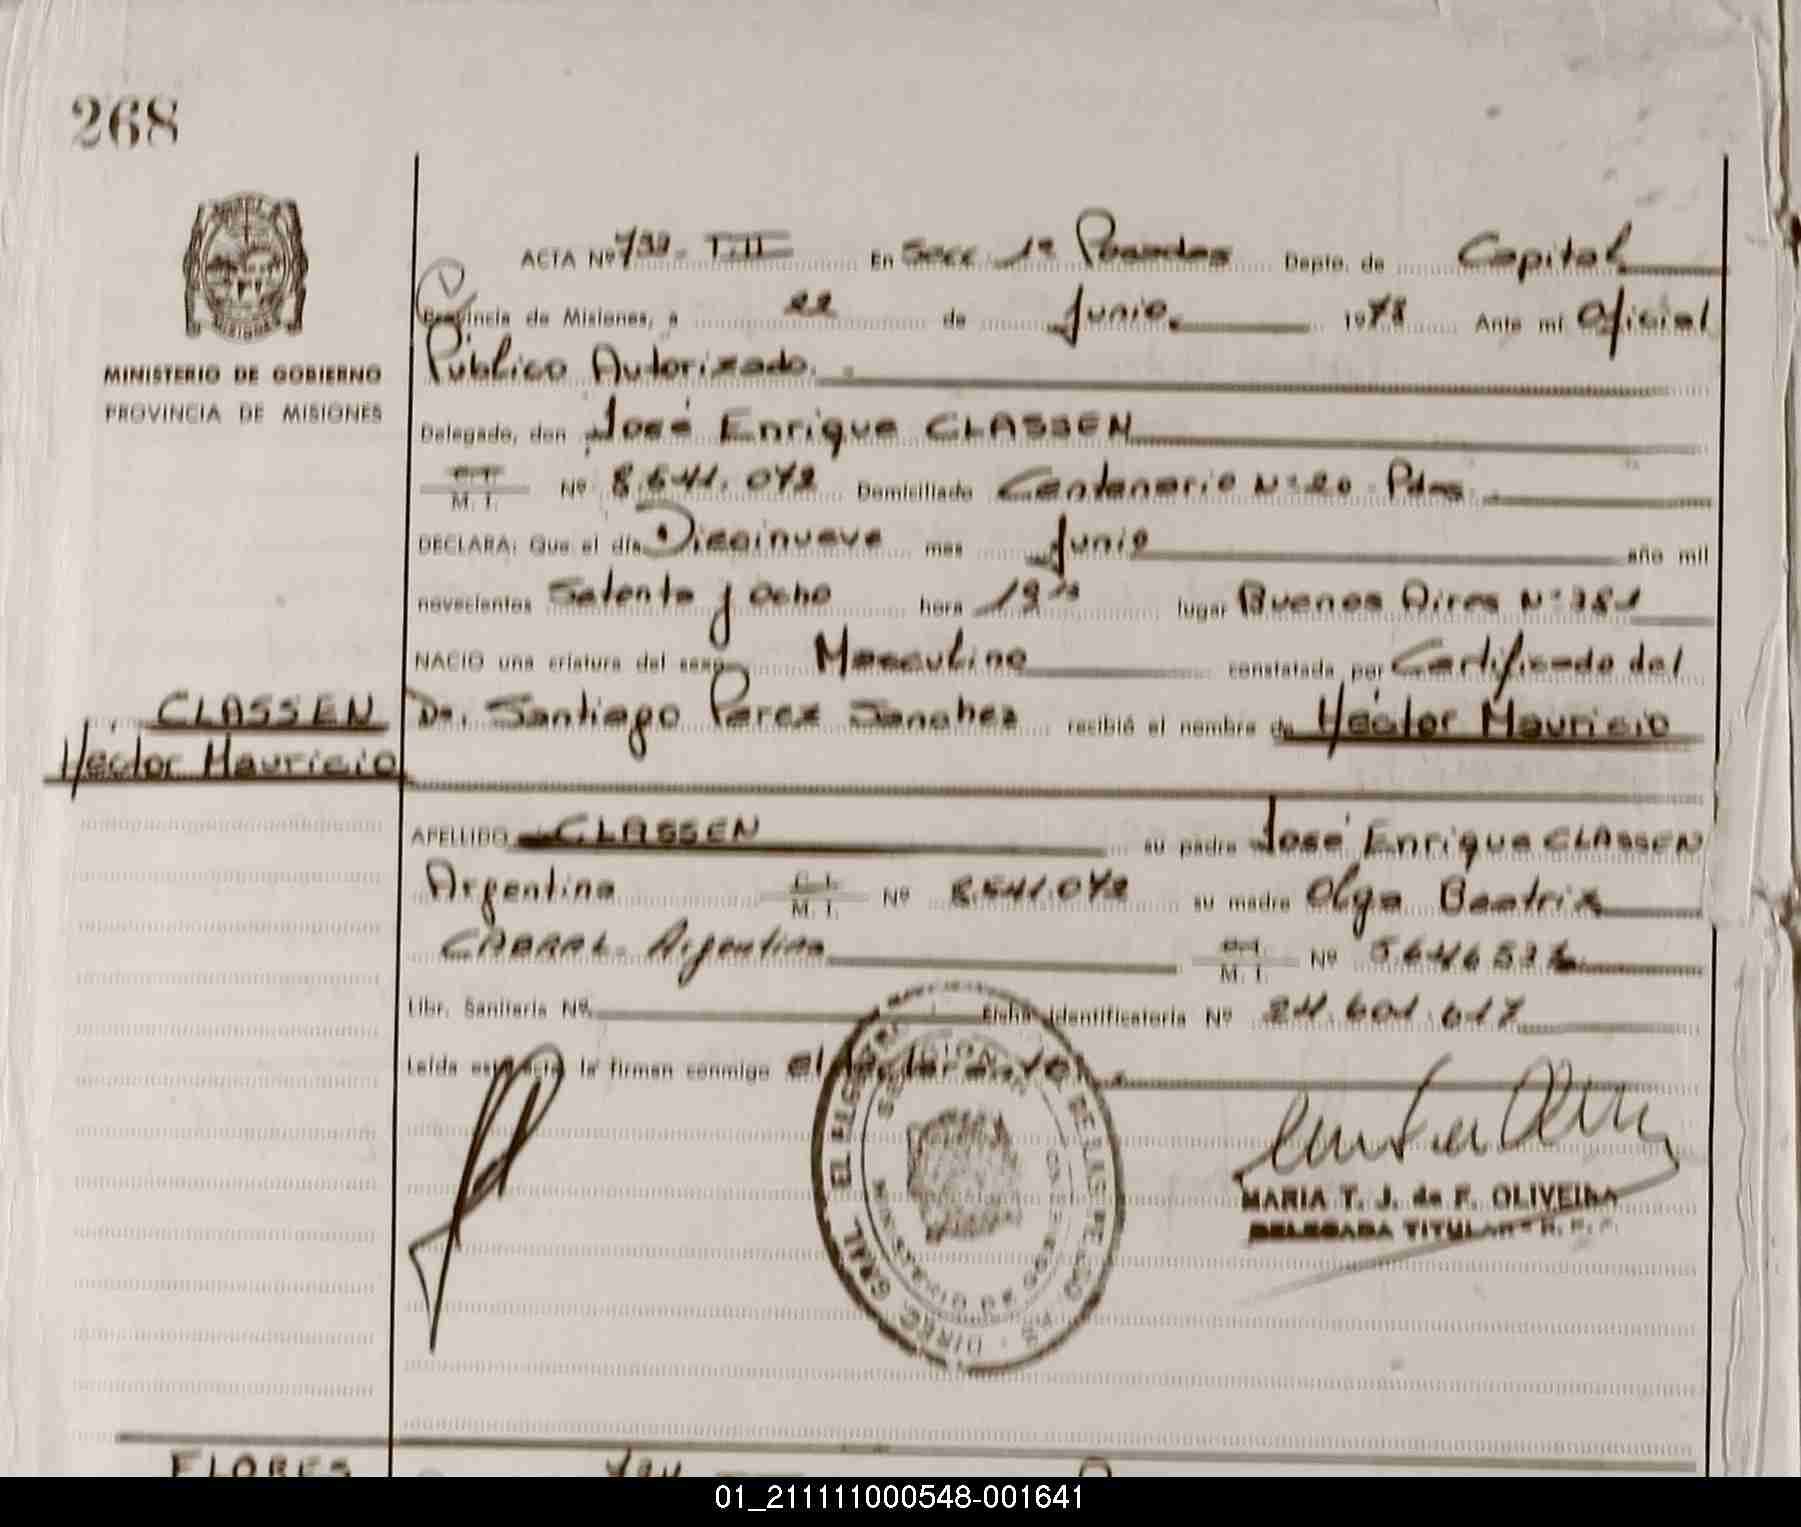 268
MINISTERIO DE GOBIERNO
PROVINCIA DE MISIONES
ACTA Nº 733- T.II En Secc 1ª Posadas Depto. de Capital
Provincia de Misiones, a 22 de Junio. 1978 Ante mi Oficial
Público Autorizado.
Delegado, don José Enrique CLASSEN
C.I. M. I. Nº 8.541.072 Domiciliado Centenario Nº 20 Pdas
DECLARA: Que el día Diecinueve mes Junio año mil
novecientos Setenta y Ocho hora lugar Buenos Aires Nº 381
NACIO una criatura del sexo Masculino constatada por Certificado del
CLASSEN
Dr. Santiago Perez Sanchez recibió el nombre de Héctor Mauricio
Héctor Mauricio
APELLIDO CLASSEN su padre José Enrique CLASSEN
Argentina C.I. M. I. Nº 8.541.072 su madre Olga Beatriz
CABRAL- Argentina C.I. M. I. Nº
Libr. Sanitaria Nº Ficha identificatoria Nº 24.601.617
Leída esta acta la firman conmigo el declarante.
MARIA T. J. de F. OLIVEIRA
DELEGADA TITULAR
FLORES
01_211111000548-001641